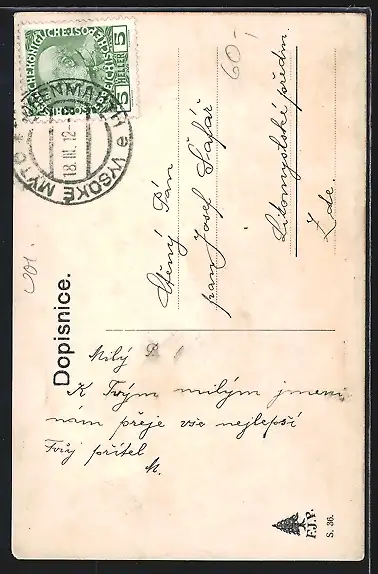 60,-
Dopisnice.
HOHENMAUTH * VYSOKÉ MÝTO
18.III.12
5 HELLER 5
Ctěný Pán
pan Josef Šafář
Litomyšlské předm.
Zde.
Milý
K Tvým milým jmeni
nám přeje vše nejlepší
Tvůj přítel
M.
F.J.P.
S. 36.